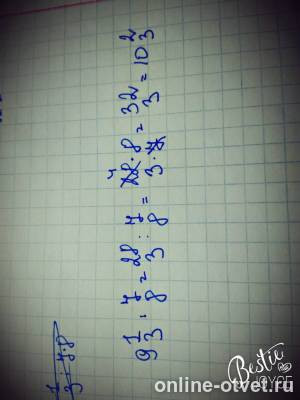 9 1/3 : 7/8 = 28/3 : 7/8 = 28 · 8 / 3 · 7 = 32/3 = 10 2/3
Bestie
online-otvet.ru